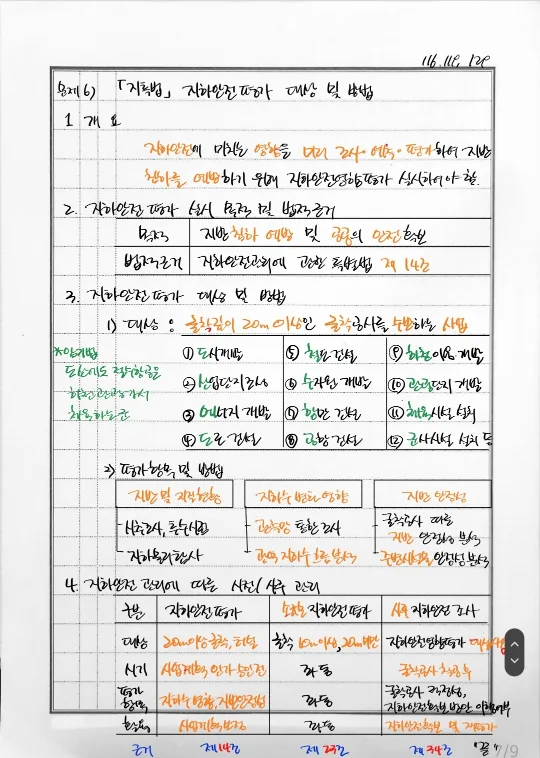 116. 118, 129
문제 6) 「지특법」 지하안전평가 대상 및 방법
1 개요
지하안전에 미치는 영향을 미리 조사·예측·평가하여 지반
침하를 예방하기 위해 지하안전영향평가 실시하여야 함.
2. 지하안전평가 실시 목적 및 법적근거
목적 지반침하 예방 및 공공의 안전확보
법적근거 지하안전관리에 관한 특별법 제14조
3. 지하안전평가 대상 및 방법
1) 대상 : 굴착깊이 20m 이상인 굴착공사를 수반하는 사업
*암기법
도산에도 철수항공은
하천관광가서
체육하는군
① 도시개발 ⑤ 철도건설 ⑨ 하천이용 개발
② 산업단지조성 ⑥ 수자원 개발 ⑩ 관광단지 개발
③ 에너지 개발 ⑦ 항만 건설 ⑪ 체육시설 설치
④ 도로 건설 ⑧ 공항 건설 ⑫ 군사시설 설치 등
2) 평가항목 및 방법
지반 및 지질현황 지하수 변화 영향 지반 안전성
시추조사, 투수시험 관측망 통한 조사 굴착공사 따른
지반 안정성 분석
지하물리탐사 광역 지하수 흐름 분석 주변시설물 안정성 분석
4. 지하안전 관리에 따른 사전/사후 관리
구분 지하안전평가 소규모 지하안전평가 사후 지하안전 조사
대상 20m이상 굴착, 터널 굴착 10m이상, 20m미만 지하안전영향평가 대상사업
시기 사업계획 인가·승인전 좌동 굴착공사 착공후
평가항목 지하수 영향, 지반안전성 좌동 굴착공사 적정성,
지하안전확보방안 이행여부
사업계획보정 좌동 지하안전확보 및 재평가
근거 제14조 제23조 제34조 "끝"
7/9